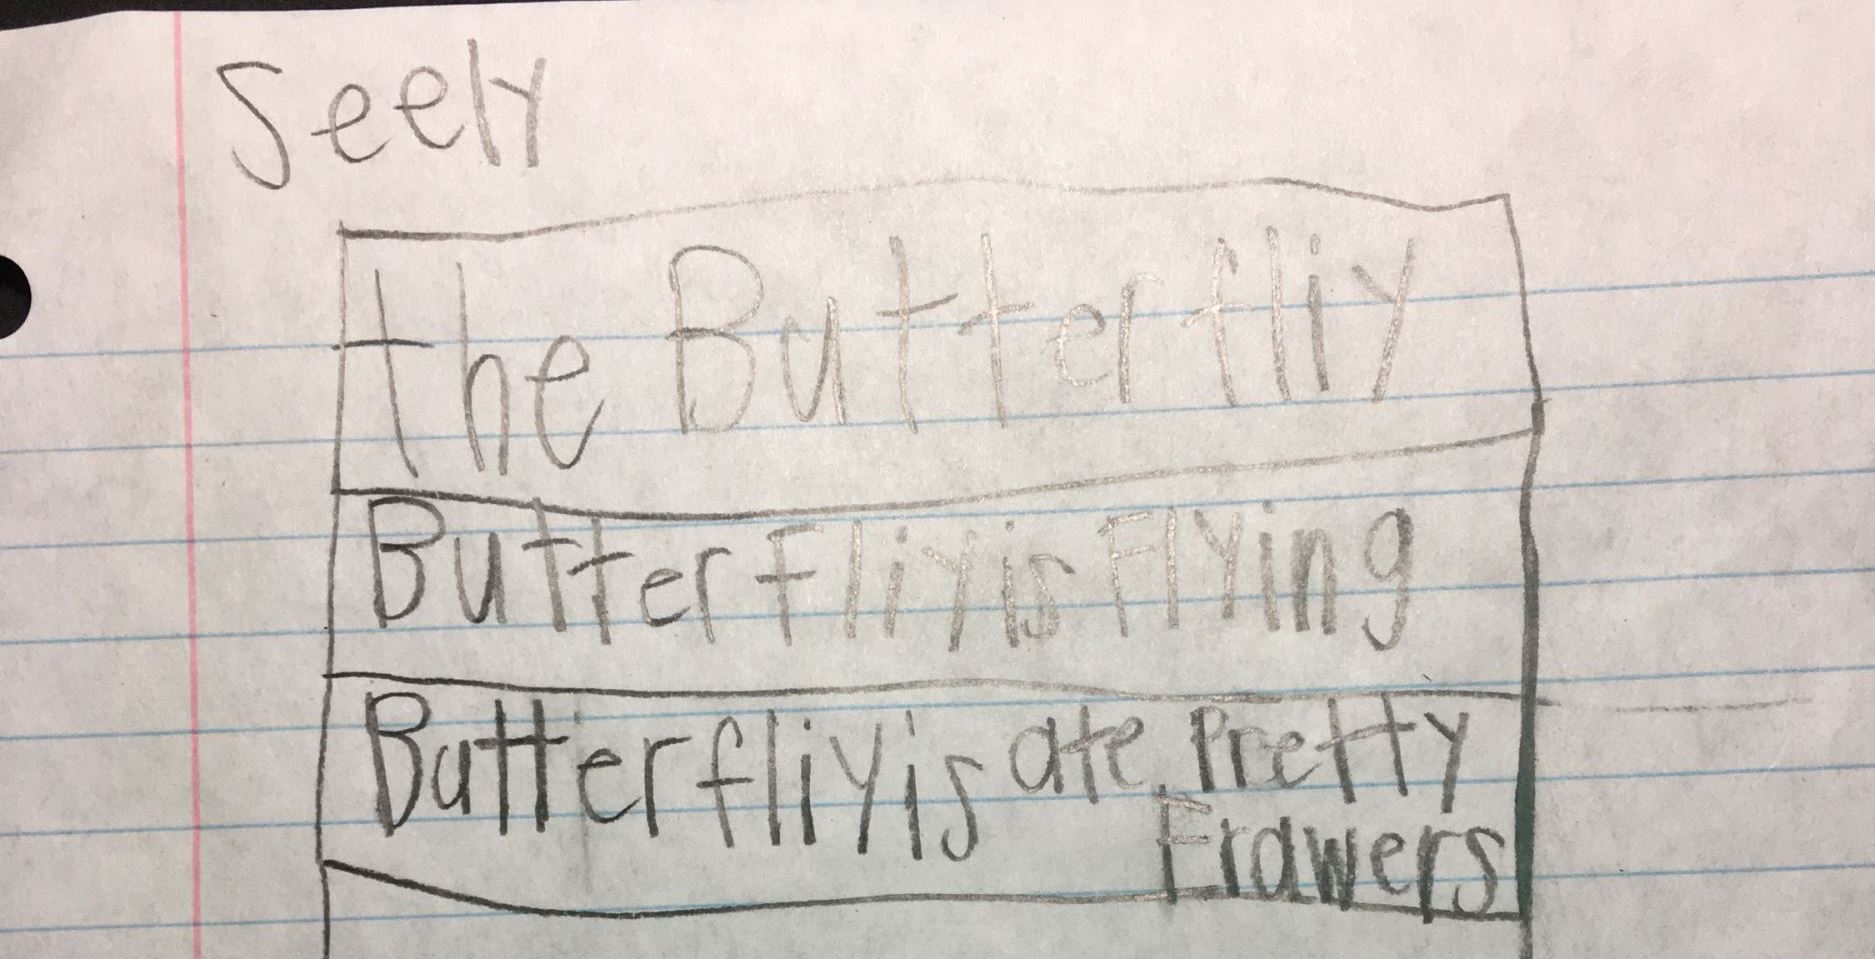 Seely
the Butterfliy
ButterFliyis Flying
Butterfliyis ate Pretty
Frawers